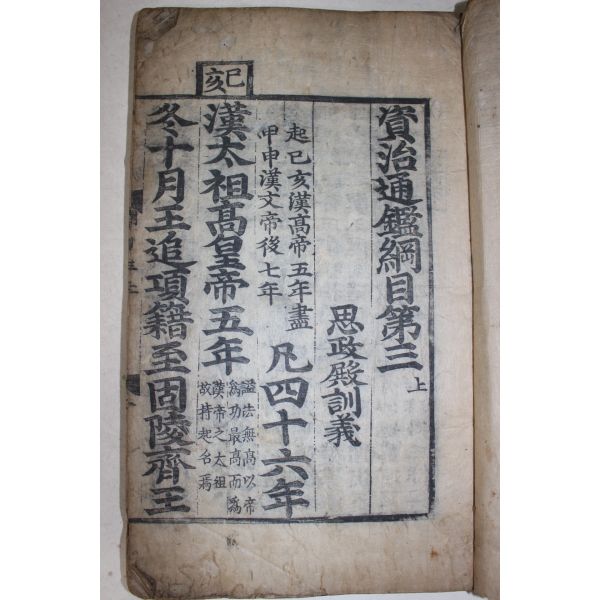 資治通鑑綱目第三上
思政殿訓義
起己亥漢高帝五年盡
甲申漢文帝後七年
凡四十六年
己亥
漢太祖高皇帝五年
謚法無高以帝
爲功最高而爲
漢帝之太祖
故特起名焉
冬十月王追項籍至固陵齊王